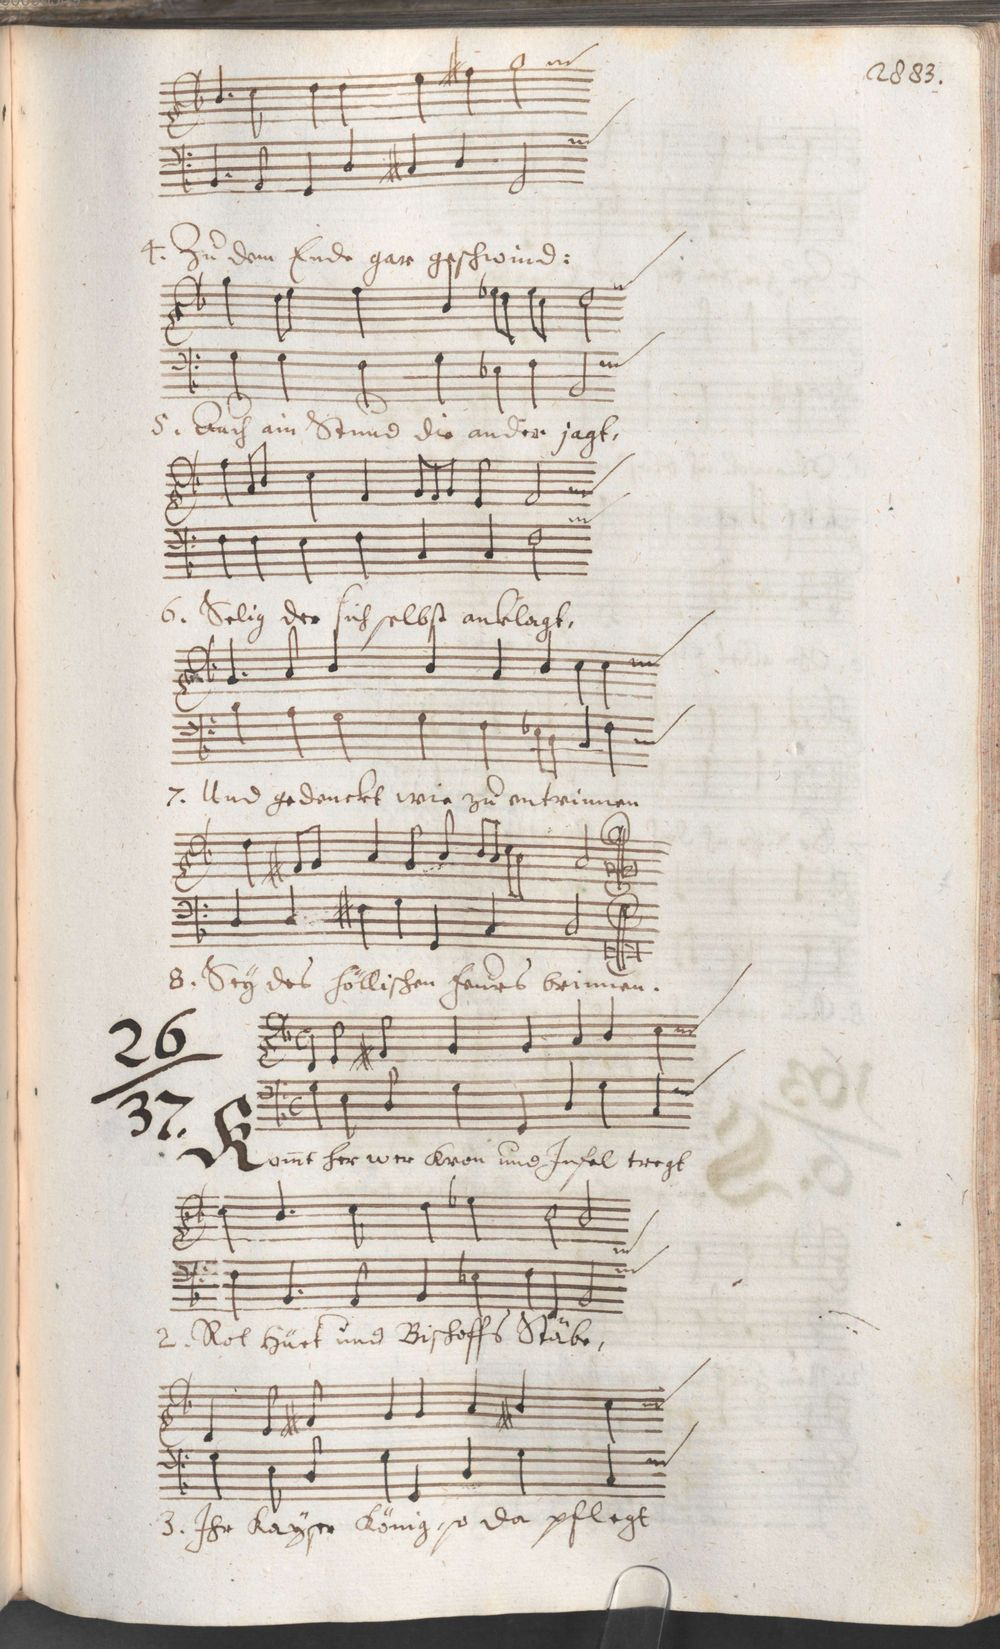 2883.
4. Zu dem Ende gar geschwind:
5. Auch ain Stund die ander jagt,
6. Selig der sich selbst anklagt,
7. Und gedenckt wie zu entrinnen
8. Sey des höllischen feürs brinnen.
26
37.
Kom̅t her wer Kron und Infel tregt
2. Rot Hüet und Bischoffs Stäbe,
3. Ihr Kayser König, so da pflegt